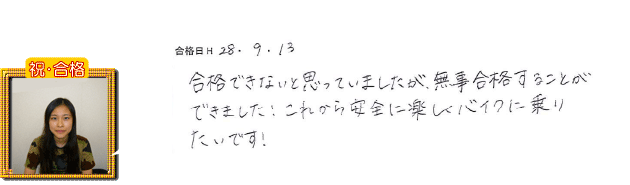 合格日H 28. 9. 13
祝・合格
合格できないと思っていましたが、無事合格することが
できました！これから安全に楽しくバイクに乗り
たいです！